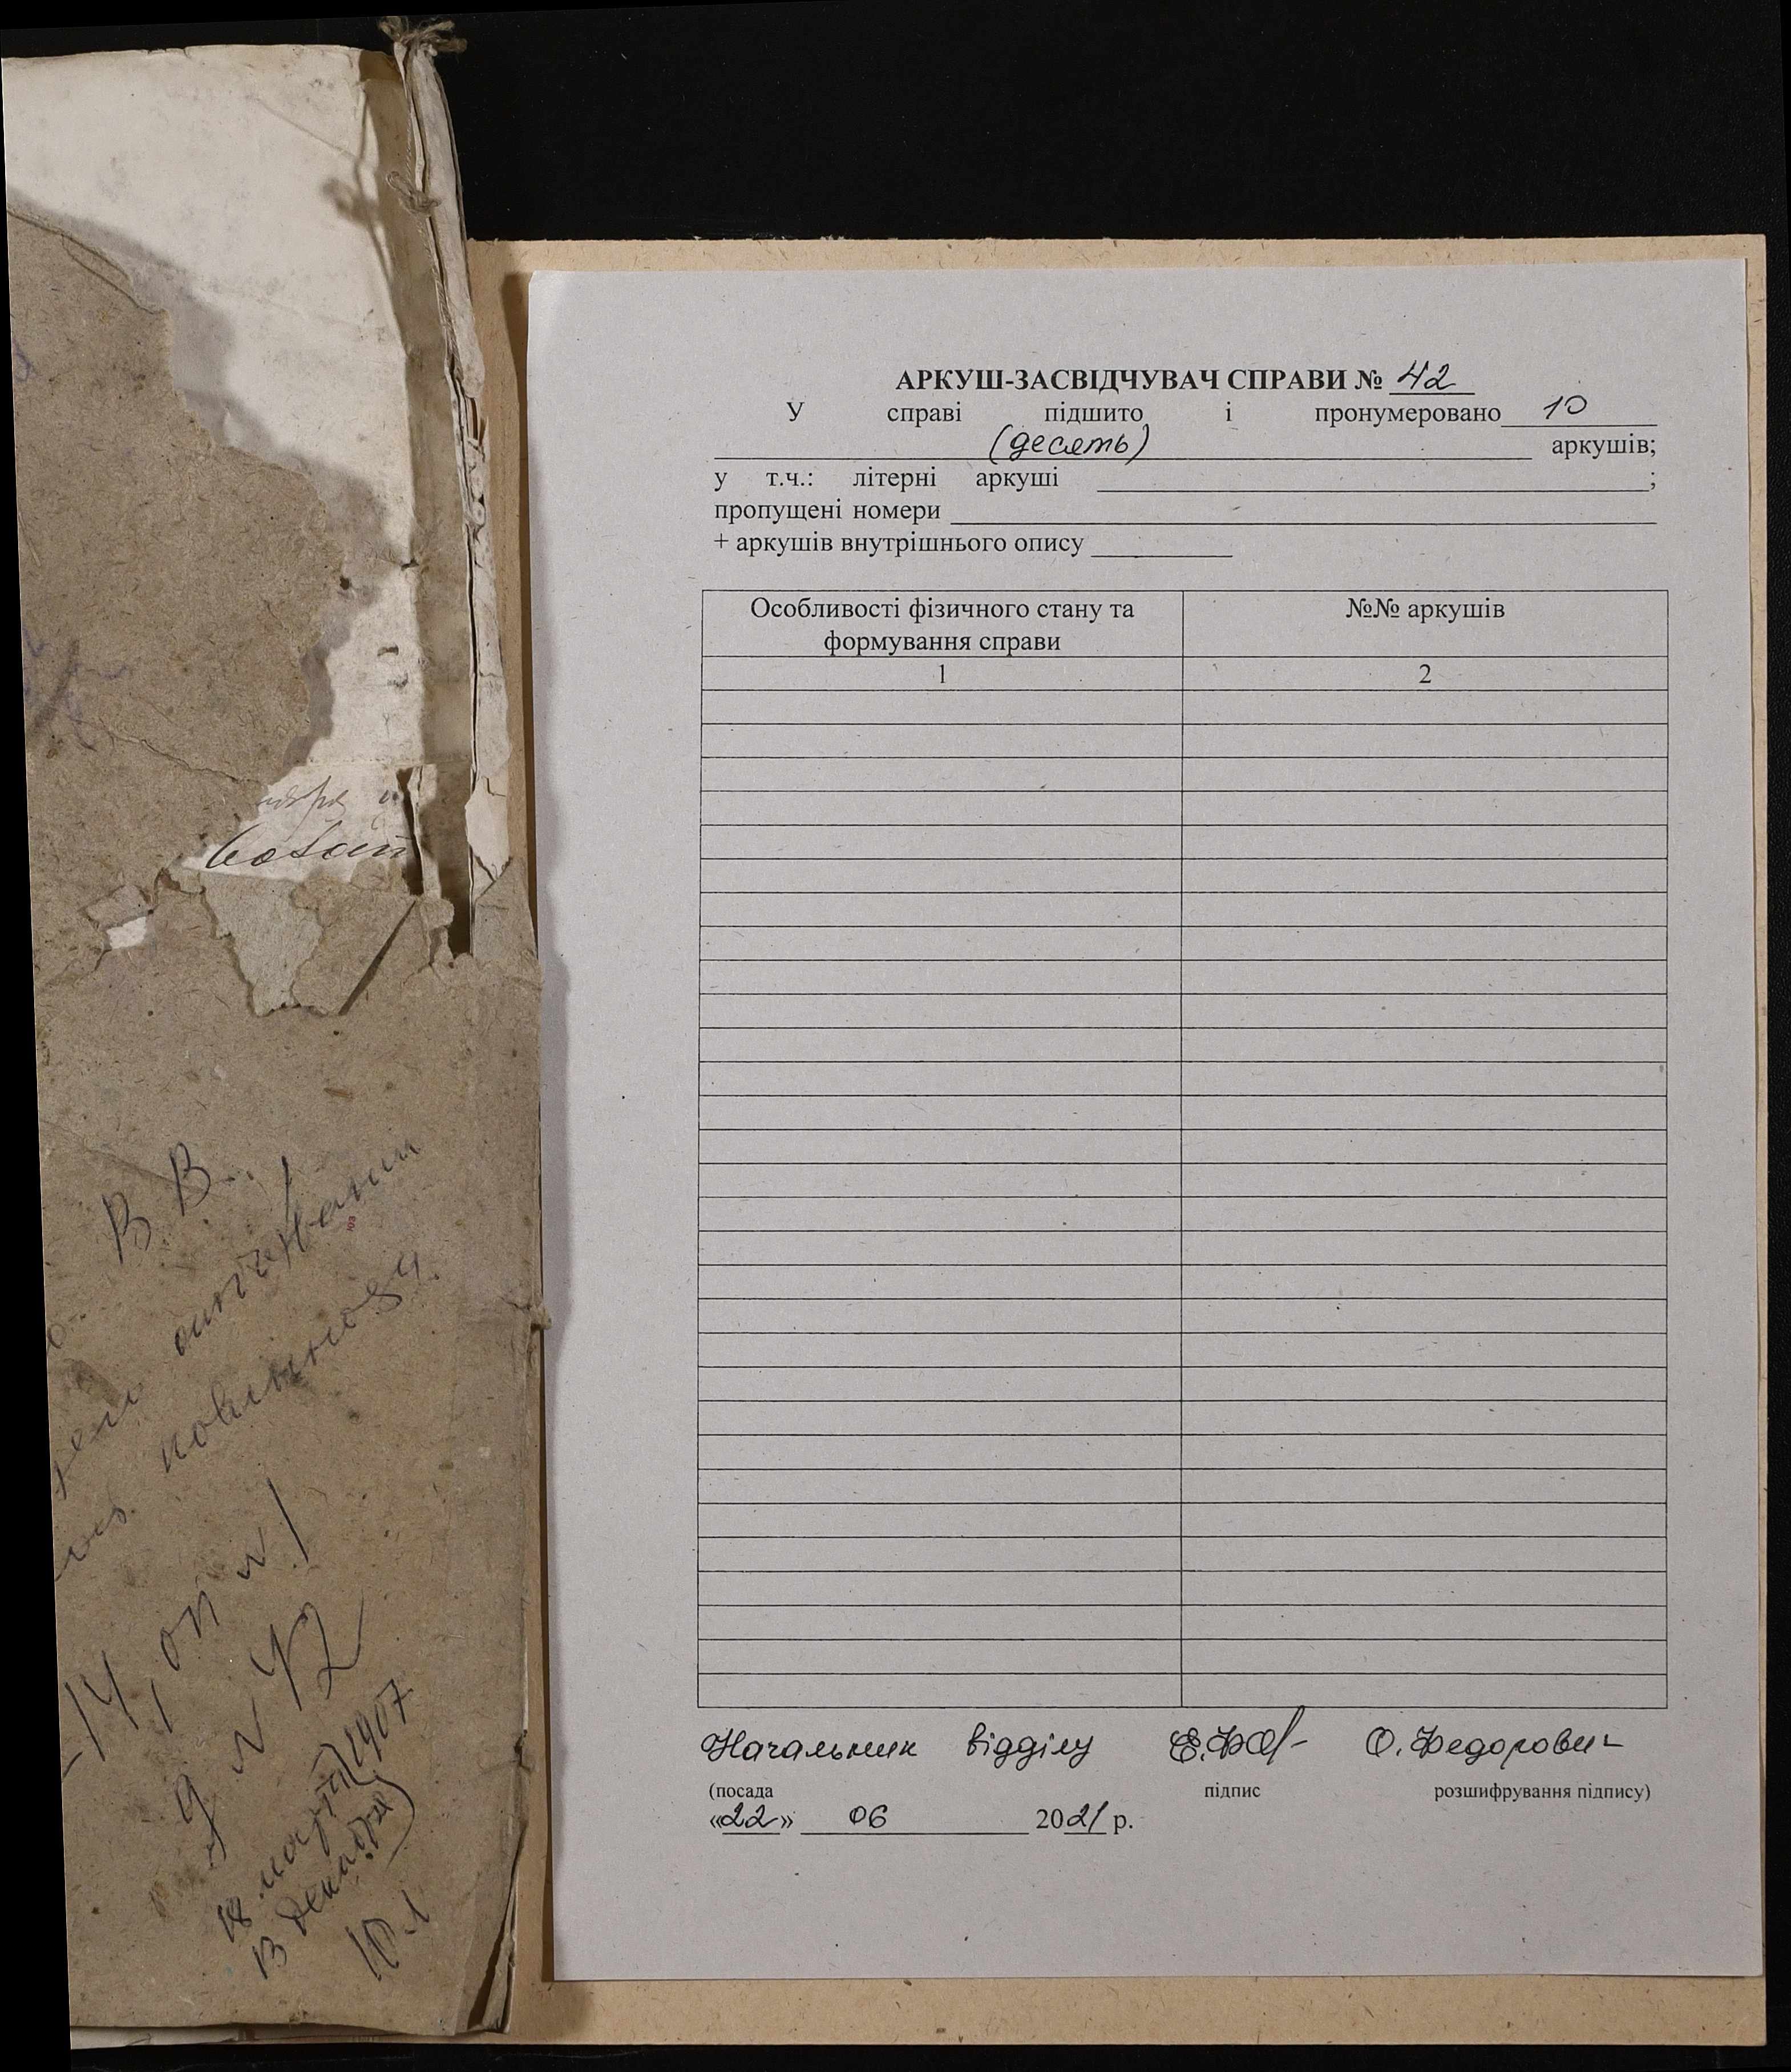 В. В.
отбывании
повинносч.
14, оп № 1
д № 42
18 марта 1907
13 декабря
10 л
АРКУШ-ЗАСВІДЧУВАЧ СПРАВИ № 42
У справі підшито і пронумеровано 10
(десять) аркушів;
у т.ч.: літерні аркуші ;
пропущені номери
+ аркушів внутрішнього опису
Особливості фізичного стану та №№ аркушів
формування справи
1 2
Начальник відділу О. Федорович
(посада підпис розшифрування підпису)
«22» 06 2021 р.